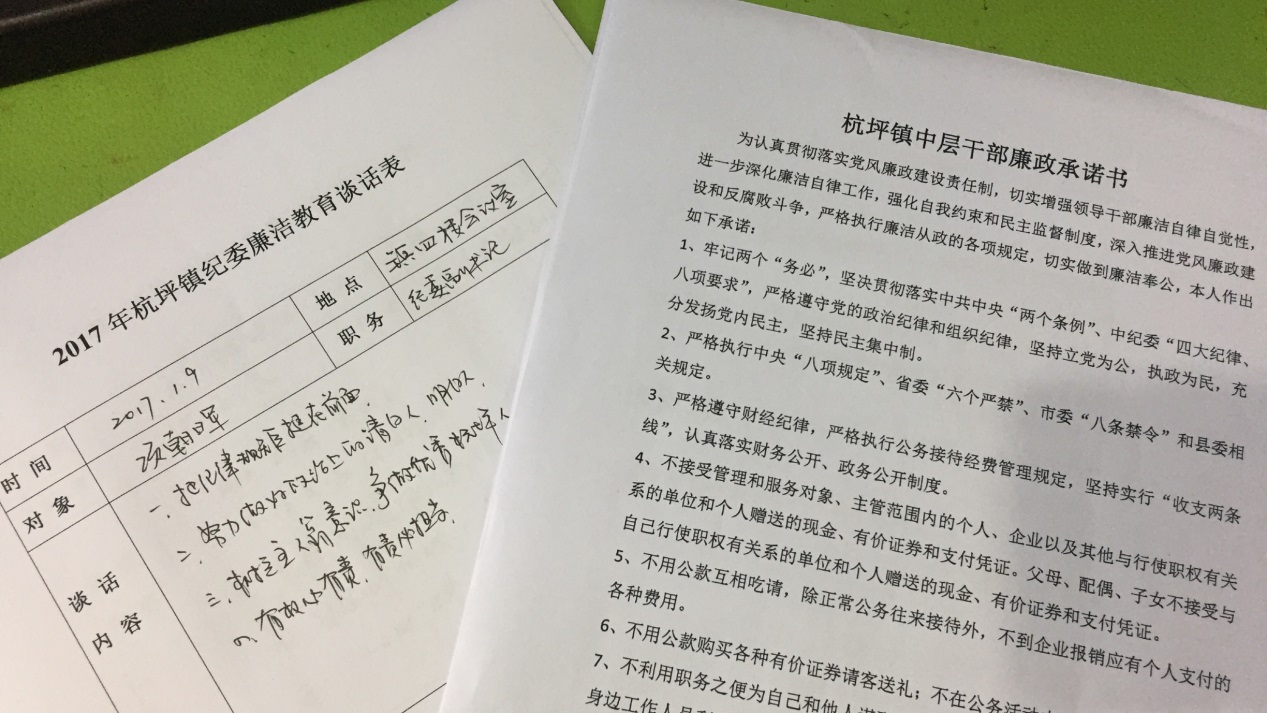 2017年杭坪镇纪委廉洁教育谈话表
时间
2017.1.9
地点
镇四楼会议室
对象
项朝军
职务
纪委副书记
谈话
内容
一、把纪律规矩挺在前面.
二、努力做好政治上的清白人、明白人.
三、树立主人翁意识,争做负责
四、有权必有责,有责必担当.
杭坪镇中层干部廉政承诺书
为认真贯彻落实党风廉政建设责任制，切实增强领导干部廉洁自律自觉性，
进一步深化廉洁自律工作，强化自我约束和民主监督制度，深入推进党风廉政建
设和反腐败斗争，严格执行廉洁从政的各项规定，切实做到廉洁奉公，本人作出
如下承诺：
1、牢记两个“务必”，坚决贯彻落实中共中央“两个条例”、中纪委“四大纪律、
八项要求”，严格遵守党的政治纪律和组织纪律，坚持立党为公，执政为民，充
分发扬党内民主，坚持民主集中制。
2、严格执行中央“八项规定”、省委“六个严禁”、市委“八条禁令”和县委相
关规定。
3、严格遵守财经纪律，严格执行公务接待经费管理规定，坚持实行“收支两条
线”，认真落实财务公开、政务公开制度。
4、不接受管理和服务对象、主管范围内的个人、企业以及其他与行使职权有关
系的单位和个人赠送的现金、有价证券和支付凭证。父母、配偶、子女不接受与
自己行使职权有关系的单位和个人赠送的现金、有价证券和支付凭证。
5、不用公款互相吃请，除正常公务往来接待外，不到企业报销应有个人支付的
各种费用。
6、不用公款购买各种有价证券请客送礼；不在公务活动
7、不利用职务之便为自己和他人谋
身边工作人员